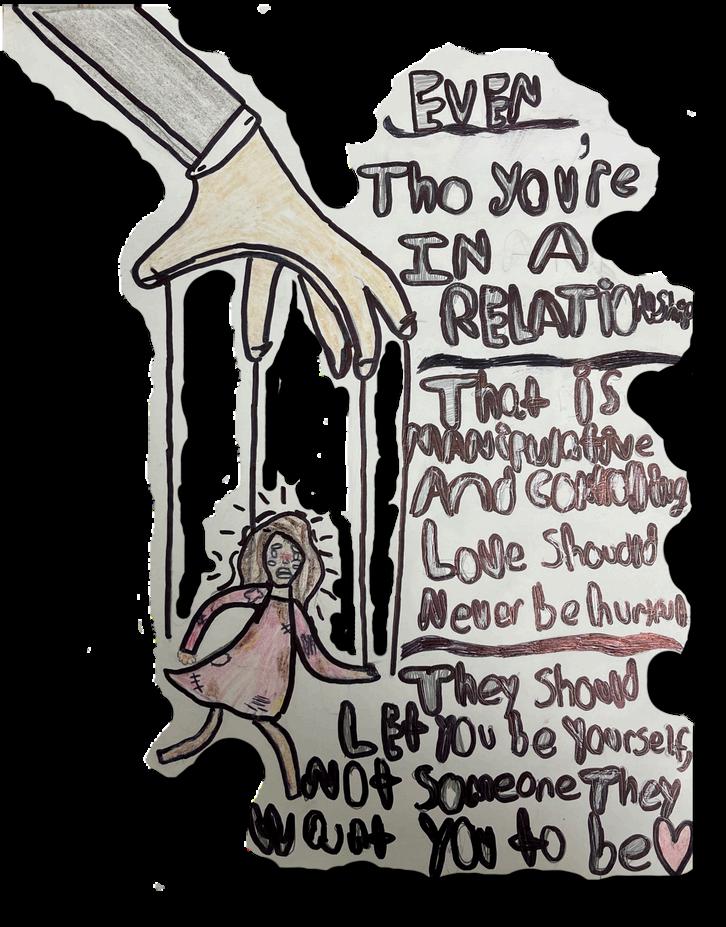 EVEN,
Tho you're
IN A
RELATIONship
That is
MANipulative
And Controlling
Love should
Never be hurtful
They should
LEt you be yourself,
NOt Someone They
Want You to be